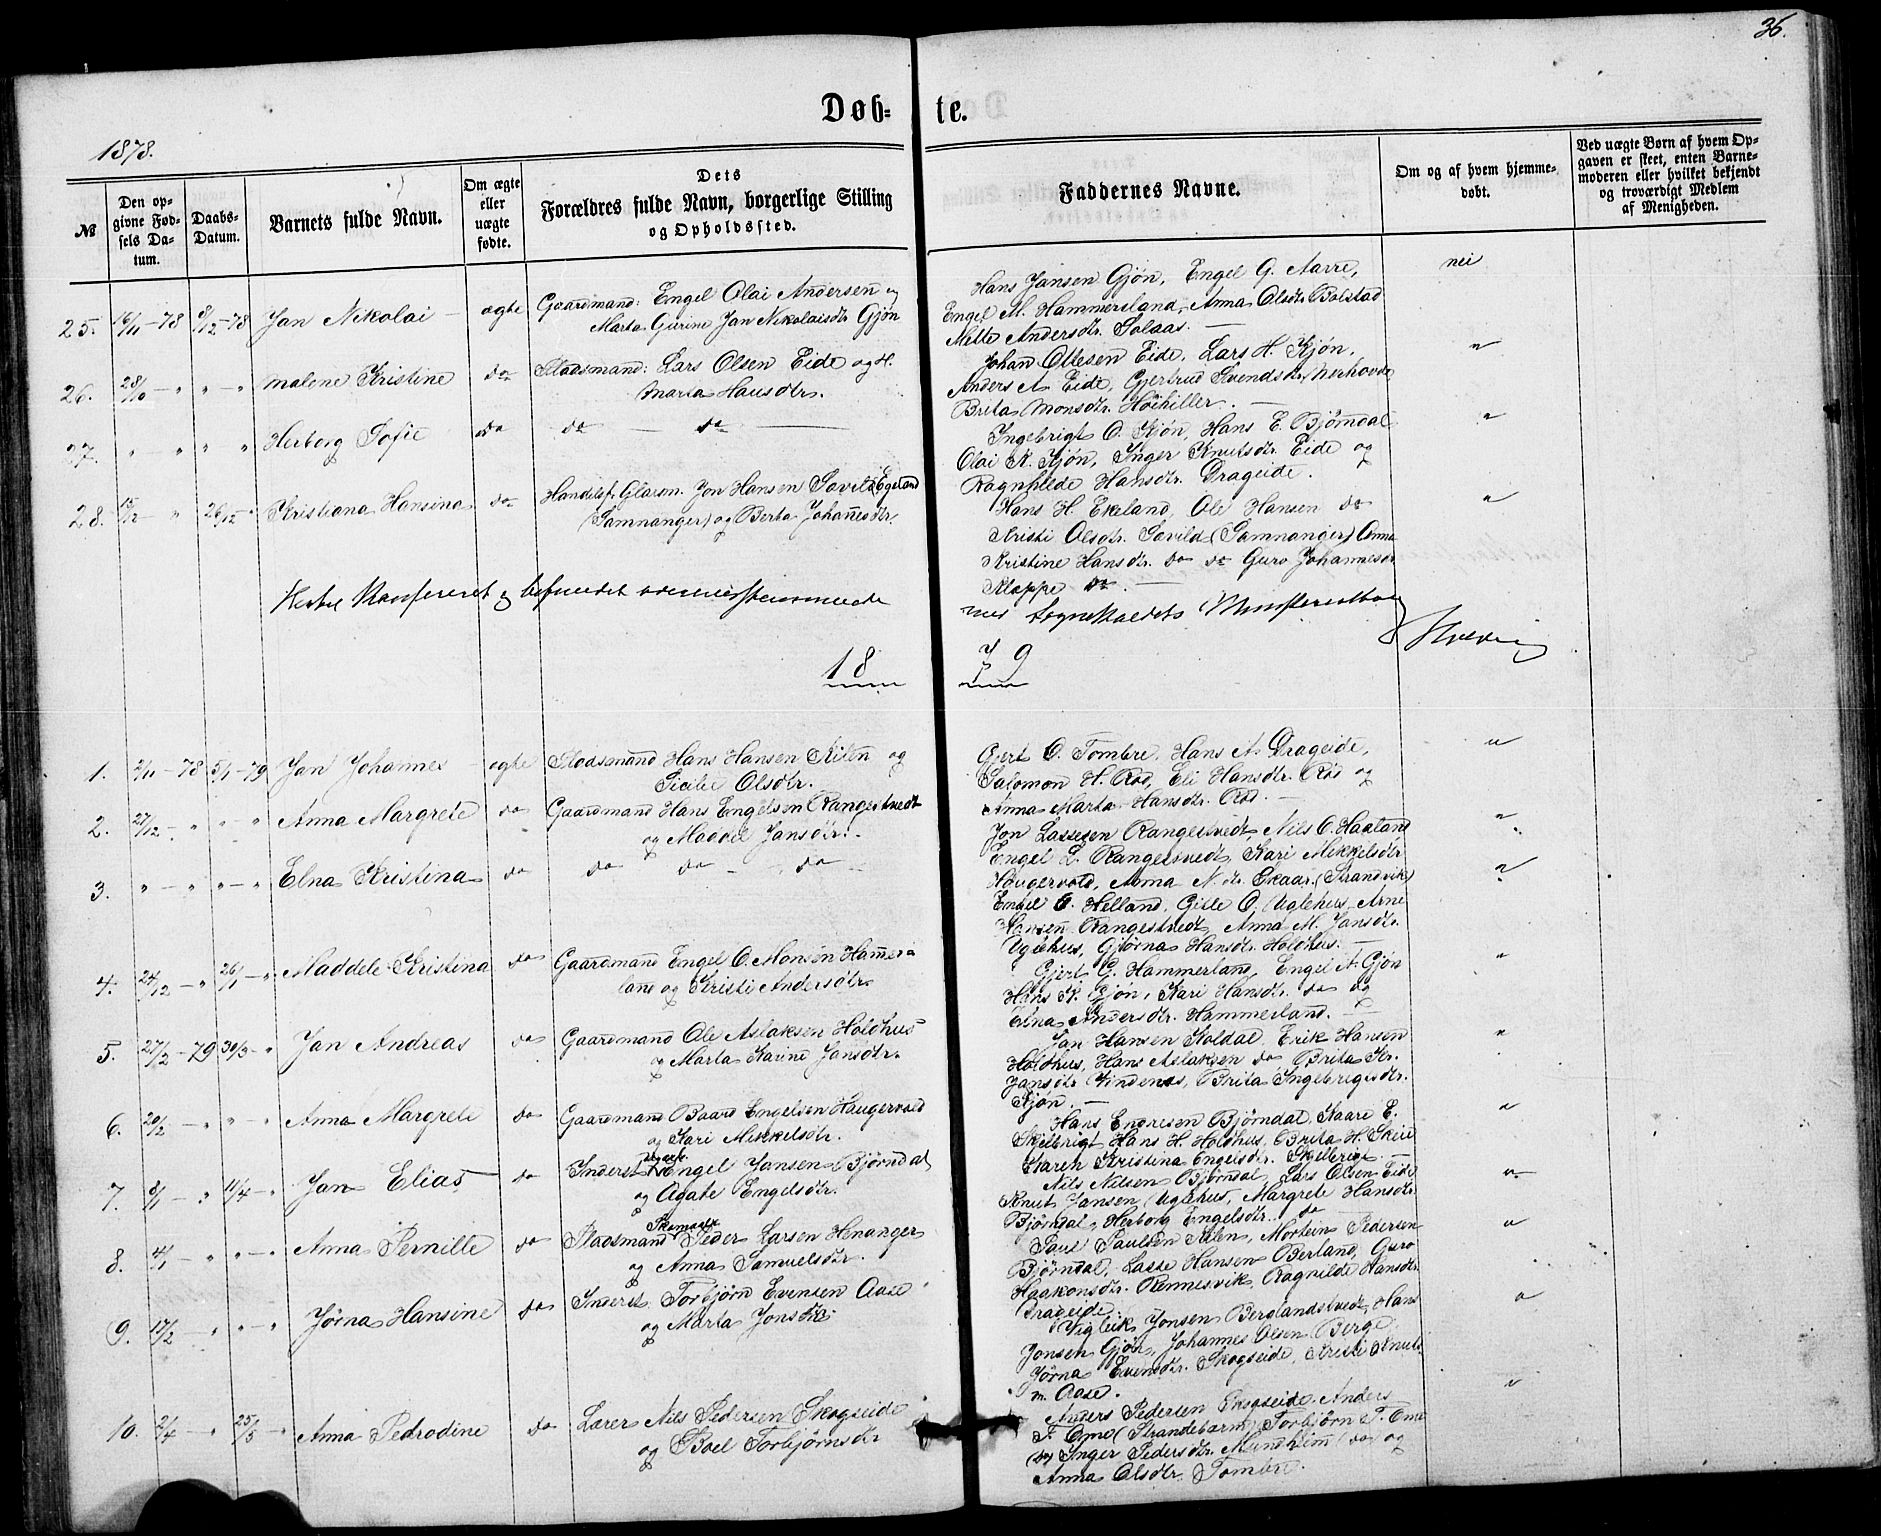 36.
Døb-
te.
1878.
№
Den op-
givne Fød-
sels Da-
tum.
Daabs-
Datum.
Barnets fulde Navn.
Om ægte
eller
uægte
fødte.
Dets
Forældres fulde Navn, borgerlige Stilling
og Opholdssted.
Faddernes Navne.
Om og af hvem hjemme-
døbt.
Ved uægte Børn af hvem Op-
gaven er skeet, enten Barne-
moderen eller hvilket bekjendt
og troværdigt Medlem
af Menigheden.
25. 16/11-78 8/12-78 Jan Nikolai - ægte Gaardmand: Engel Olai Andersen og
Marta Gurine Jan Nikolaisdtr Gjøn
Hans Jansen Gjøn, Engel G. Aarre, nei
Engel M. Hammersland, Anna Olsdtr Bolstad
Mette Andersdtr. Solaas. -
26. 28/10 - " " - " Malene Kristine do Stadsmand: Lars Olsen Eide og H.
Marta Hansdtr.
Johan Olsesen Eide, Lars H. Kjøn, "
Anders A Eide, Gjertrud Svendsdtr
Brita Monsdtr. Høihiller. -
27. " - " " " Herborg Sofie do do - do -
Ingebrigt O. Kjøn, Hans E. Bjørndal "
Olai N. Kjøn, Inger Knutsdtr. Eide og
Ragnhilde Hansdtr. Drageide.
28. 15/12 - " 26/12 - " Kristiana Hansina do Jon Hansen Egeland
(Samnanger) og Berta Johannesdtr.
Hans H. Ekeland, Ole Hansen do "
Kristi Olsdtr. Savild (Samnanger) Anna
Kristine Hansdtr. do do Guro Johannesdtr
Klappe do. -
Hertil Konfereret og befundet overensstemmende
med Sogne Kaldets Ministerialbog
18
79
1. 2/11-78 5/1-79 Jan Johannes - ægte Stadsmand Hans Hansen Kilen og
Sicilie Olsdtr.
Gjert O. Tombre, Hans A. Drageide, "
Salomon H. Rød, Eli Hansdtr. Rød og
Anna Marta Hansdtr. Rød. -
2. 27/12 - " " - " Anna Margrete do Gaardmand Hans Engelsen Rangestvedt
og Maddel Jansdtr.
Jon Lassesen Rangestvedt, Nils O. Haaland "
Engel L. Rangestvedt, Kari Mikkelsdtr
3. " - " " - " Elna Kristina do do do - do
Haugervold, Anna N.dtr. Skaar (Strandvik) "
Engel O. Helland, Gisle O. Uglehus, Arne
Hansen Rangestvedt, Anna M. Jansdtr.
Uglehus, Gjørna Hansdtr. Holdhus. -
4. 24/12 - " 26/1 - " Maddele Kristina do Gaardmand Engel O. Monsen Hammers-
land og Kristi Andersdtr.
Gjert G. Hammerland, Engel A. Gjøn "
Hans N. Gjøn, Kari Hansdtr. do og
Elna Andersdtr. Hammerland. -
5. 27/2 - 79 30/3 - " Jan Andreas do Gaardmand Ole Aslaksen Holdhus
og Marta Karine Jansdtr.
Jan Hansen Koldal, Erik Hansen "
Holdhus, Hans Aslaksen do Brita Kr.
Jansdtr Vindenes, Brita Ingebrigtsdtr.
Kjøn. -
6. 20/2 - " " - " Anna Margrete do Gaardmand Baard Engelsen Haugervold
og Kari Mikkelsdtr.
Hans Endresen Bjørndal, Kaare E. "
Skeibrigt Hans H. Holdhus, Brita H. Skeie
Karen Kristina Engelsdtr. Skeibrigt. -
7. 8/1 - " 11/4 - " Jan Elias do Inderst Engel Jansen Bjørndal
og Agate Engelsdtr.
Nils Nilsen Bjørndal, Lars Olsen Eide "
Knut Jansen Uglehus, Margrete Hansdtr
Bjørndal, Herborg Engelsdtr. do -
8. 4/1 - " " - " Anna Pernille do Stadsmand Skomager Peder Larsen Henanger
og Anna Samuelsdtr.
Paul Paulsen Kilen, Mortein Pedersen "
Bjørndal, Lasse Hansen Berland, Guro
Haakonsdtr. Rennesvik, Ragnilde Hansdtr.
Drageide.
9. 17/2 - " " - " Jørna Hansine do Inderst Torbjørn Evensen Aase
og Marta Jonsdtr
Vigleik Jonsen Berglandstvedt, Hans "
Jonsen Gjøn, Johannes Olsen Berge
Jørna Evensdtr. Skogseide, Kristi Knuts-
m. Aase.
10. 2/4 - " 25/5 - " Anna Pedrodine do Lærer Nils Pedersen Skogseide
og Boel Torbjørnsdtr
Anders Pedersen Skogseide, Anders "
T. Øme (Strandebarm), Torbjørn T. Øme
(do) Inger Pedersdtr. Mundheim (do) og
Anna Olsdtr Tombre.